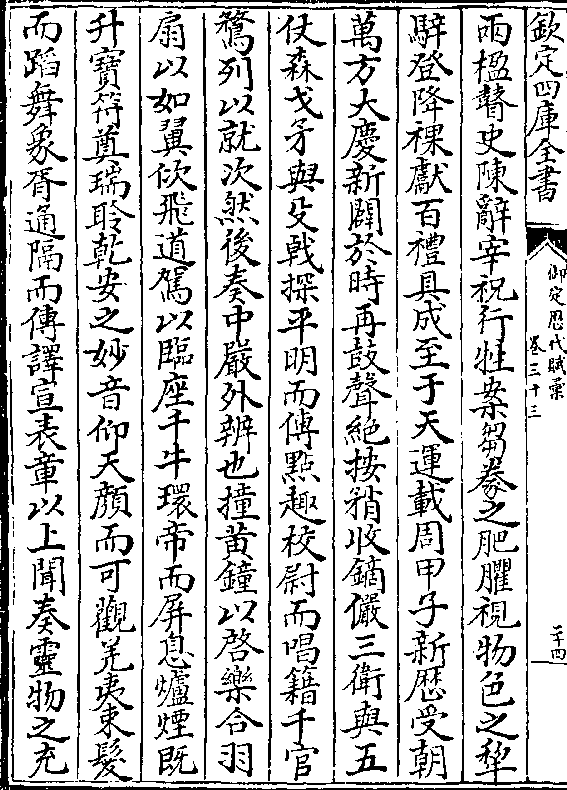 欽定四庫全書
御定歷代賦彙
卷三十三
二十四
兩楹瞽史陳辭宰祝行牲案芻豢之肥臞視物色之犂
騂登降祼獻百禮具成至于天運載周甲子新歷受朝
萬方大慶新闢於時再鼓聲絶按稍收鏑儼三衛與五
仗森戈矛與殳戟探平明而傳點趣校尉而唱籍千官
鶩列以就次然後奏中嚴外辨也撞黄鐘以啓樂合羽
扇以如翼佽飛道駕以臨座千牛環帝而屏息爐煙既
升寶符奠瑞聆乾安之妙音仰天顔而可觀羌夷束髮
而蹈舞象胥通隔而傳譯宣表章以上聞奏靈物之充